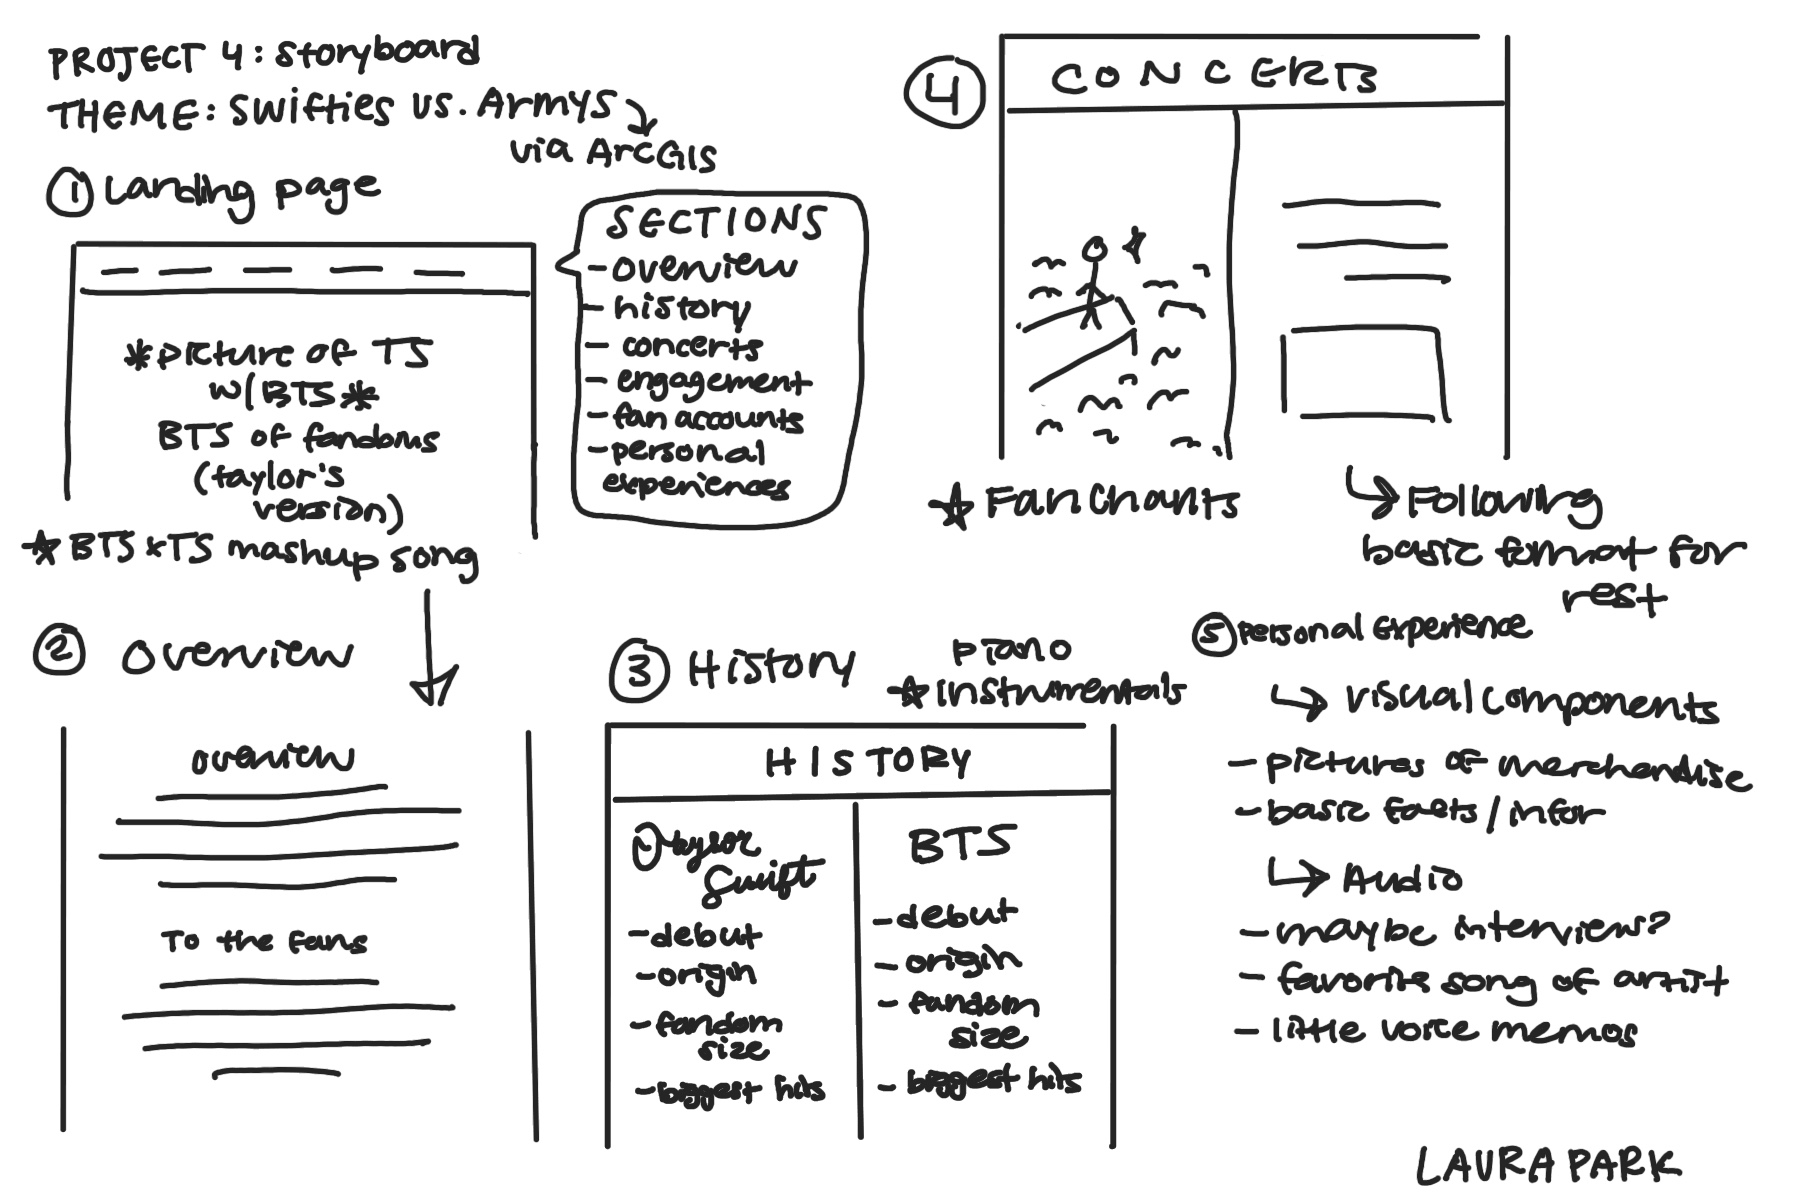 PROJECT 4: Storyboard
THEME: Swifties vs. Armys
via ArcGIS
① Landing page
*picture of TS
w/ BTS*
BTS of fandoms
(taylor's
version)
★ BTS x TS mashup song
SECTIONS
- overview
- history
- concerts
- engagement
- fan accounts
- personal
experiences
② Overview
overview
To the fans
③ History
piano
★ instrumentals
HISTORY
Taylor
Swift
- debut
- origin
- fandom
size
- biggest hits
BTS
- debut
- origin
- fandom
size
- biggest hits
④ CONCERTS
★ Fan Chants
↳ Following
basic format for
rest
⑤ Personal Experience
↳ visual components
- pictures of merchandise
- basic facts / infor
↳ Audio
- maybe interview?
- favorite song of artist
- little voice memos
LAURA PARK